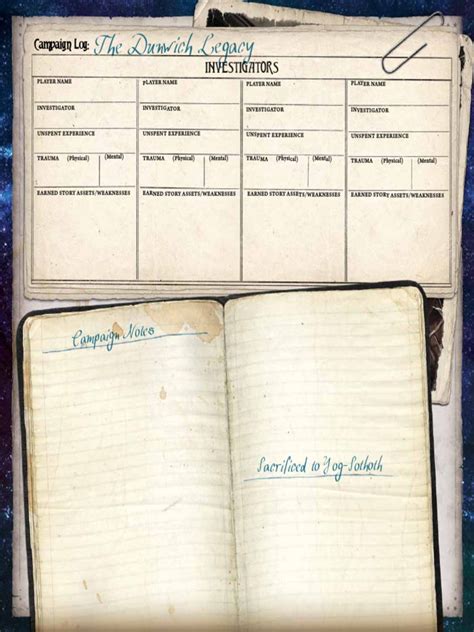 Campaign Log: The Dunwich Legacy
INVESTIGATORS
PLAYER NAME PLAYER NAME PLAYER NAME PLAYER NAME
INVESTIGATOR INVESTIGATOR INVESTIGATOR INVESTIGATOR
UNSPENT EXPERIENCE UNSPENT EXPERIENCE UNSPENT EXPERIENCE UNSPENT EXPERIENCE
TRAUMA (Physical) (Mental) TRAUMA (Physical) (Mental) TRAUMA (Physical) (Mental) TRAUMA (Physical) (Mental)
EARNED STORY ASSETS/WEAKNESSES EARNED STORY ASSETS/WEAKNESSES EARNED STORY ASSETS/WEAKNESSES EARNED STORY ASSETS/WEAKNESSES
Campaign Notes
Sacrificed to Yog-Sothoth